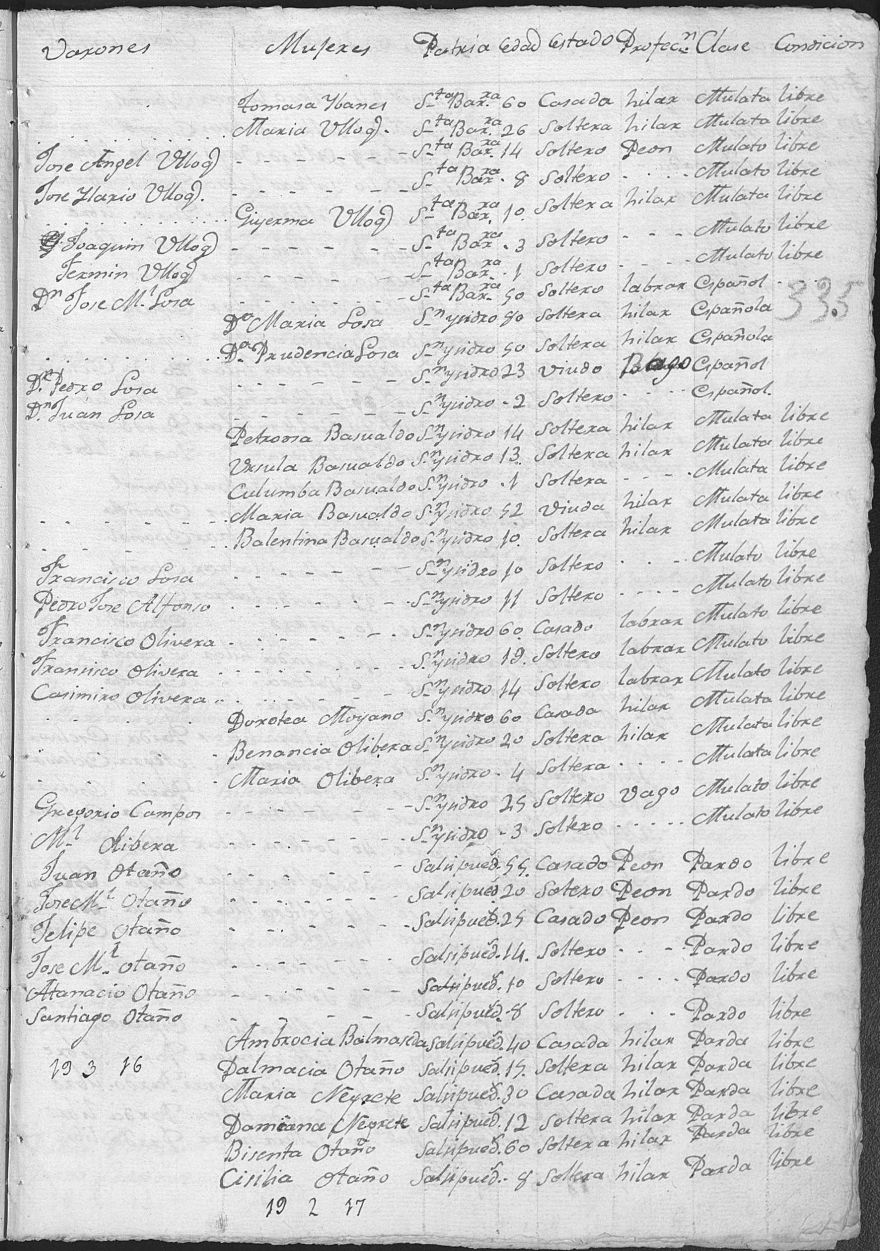 Varones Mujeres Patria Edad Estado Profecn Clase Condicion
Tomasa Ybanes Sta Barra 60 Casada hilar Mulata libre
Maria Ulloq. Sta Barra 26 Soltera hilar Mulata libre
Jose Angel Ulloq Sta Barra 14 Soltero Peon Mulato libre
Jose Ylario Ulloq. Sta Barra 8 Soltero Mulato libre
Giyerma Ulloq Sta Barra 10 Soltera hilar Mulata libre
Joaquin Ulloq Sta Barra 3 Soltero Mulato libre
Fermin Ulloq Sta Barra 1 Soltero Mulato libre
Dn Jose Ml Losa Sta Barra 50 Soltero labrar Español
335
Da Maria Losa Sn Ysidro 80 Soltera hilar Española
Da Prudencia Losa Sn Ysidro 50 Soltera hilar Española
Dn Pedro Losa Sn Ysidro 23 Viudo Bago Español
Dn Juan Losa Sn Ysidro 2 Soltero Español
Petrona Basualdo Sn Ysidro 14 Soltera hilar Mulata libre
Ursula Basualdo Sn Ysidro 13 Soltera hilar Mulata libre
Culumba Basualdo Sn Ysidro 1 Soltera Mulata libre
Maria Basualdo Sn Ysidro 52 Viuda hilar Mulata libre
Balentina Basualdo Sn Ysidro 10 Soltera hilar Mulata libre
Francisco Losa Sn Ysidro 10 Soltero Mulato libre
Pedro Jose Alfonso Sn Ysidro 11 Soltero Mulato libre
Francisco Olivera Sn Ysidro 60 Casado labrar Mulato libre
Fransisco Olivera Sn Ysidro 18 Soltero labrar Mulato libre
Casimiro Olivera Sn Ysidro 14 Soltero labrar Mulato libre
Dorotea Moyano Sn Ysidro 60 Casada hilar Mulata libre
Benancia Olibera Sn Ysidro 20 Soltera hilar Mulata libre
Maria Olibera Sn Ysidro 4 Soltera Mulata libre
Gregorio Campos Sn Ysidro 25 Soltero Vago Mulato libre
Ml Olibera Sn Ysidro 3 Soltero Mulato libre
Juan Otaño Salsipued. 55 Casado Peon Pardo libre
Jose Ml Otaño Salsipued 20 Sotero Peon Pardo libre
Felipe Otaño Salsipued. 25 Casado Peon Pardo libre
Jose Ml Otaño Salsipued. 14 Soltero Pardo libre
Atanacio Otaño Salsipued. 10 Soltero Pardo libre
Santiago Otaño Salsipued. 8 Soltero Pardo libre
Ambrocia Balmaseda Salsipued. 40 Casada hilar Parda libre
19 3 16 Dalmacia Otaño Salsipued. 15 Soltera hilar Parda libre
Maria Negrete Salsipued. 30 Casada hilar Parda libre
Damiana Negrete Salsipued. 12 Soltera hilar Parda libre
Bisenta Otaño Salsipued. 60 Soltera hilar Parda libre
Cisilia Otaño Salsipued. 8 Soltera hilar Parda libre
19 2 17